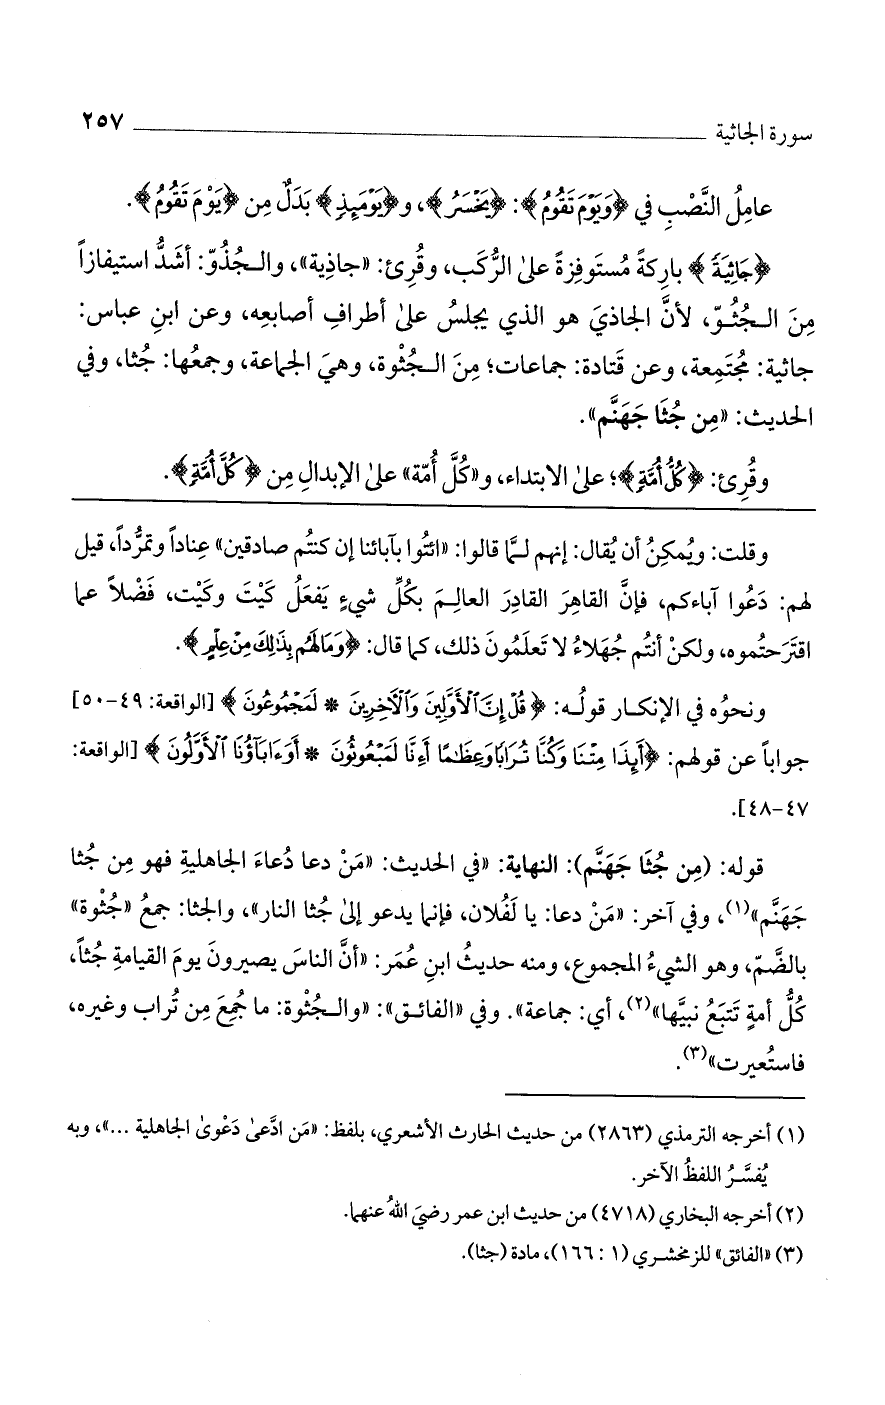 سورة الجاثية ٢٥٧
عامِلُ النَّصْبِ في ﴿وَيَوْمَ تَقُومُ﴾: ﴿يَخْسَرُ﴾، و﴿يَوْمَئِذٍ﴾ بَدَلٌ مِن ﴿يَوْمَ تَقُومُ﴾.
﴿جَاثِيَةً﴾ بارِكةً مُستَوفِزةً على الرُّكَب، وقُرِئ: «جاذِية»، والـجُذُوّ: أشَدُّ استيفازاً
مِنَ الـجُثُـوّ، لأنَّ الجاذيَ هو الذي يجلسُ على أطرافِ أصابعِه، وعن ابنِ عباس:
جاثية: مُجتَمِعة، وعن قَتادة: جماعات؛ مِنَ الـجُثْوة، وهيَ الجماعة، وجمعُها: جُثا، وفي
الحديث: «مِن جُثَا جَهَنَّم».
وقُرِئ: ﴿كُلُّ أُمَّةٍ﴾؛ على الابتداء، و«كُلَّ أُمّة» على الإبدالِ مِن ﴿كُلَّ أُمَّةٍ﴾.
وقلت: ويُمكِنُ أن يُقال: إنهم لـمَّا قالوا: «ائتُوا بآبائنا إن كنتُم صادقين» عِناداً وتمرُّداً، قيل
لهم: دَعُوا آباءكم، فإنَّ القاهِرَ القادِرَ العالِـمَ بكُلِّ شيءٍ يَفعَلُ كَيْتَ وكَيْت، فَضْلاً عما
اقتَرَحتُموه، ولكنْ أنتُم جُهَلاءُ لا تَعلَمُونَ ذلك، كما قال: ﴿وَمَا لَهُم بِذَٰلِكَ مِنْ عِلْمٍ﴾.
ونحوُه في الإنكـار قولُـه: ﴿قُلْ إِنَّ ٱلْأَوَّلِينَ وَٱلْآخِرِينَ * لَمَجْمُوعُونَ﴾ [الواقعة: ٤٩-٥٠]
جواباً عن قولهم: ﴿أَيِذَا مِتْنَا وَكُنَّا تُرَابًا وَعِظَٰمًا أَءِنَّا لَمَبْعُوثُونَ * أَوَءَابَآؤُنَا ٱلْأَوَّلُونَ﴾ [الواقعة:
٤٧-٤٨].
قوله: (مِن جُثَا جَهَنَّم): النهاية: «في الحديث: «مَنْ دعا دُعاءَ الجاهليةِ فهو مِن جُثا
جَهَنَّم»(١)، وفي آخر: «مَنْ دعا: يا لَفُلان، فإنما يدعو إلى جُثا النار»، والجثا: جمعُ «جُثْوة»
بالضَّمّ، وهو الشيءُ المجموع، ومنه حديثُ ابنِ عُمَر: «أنَّ الناسَ يصيرونَ يومَ القيامةِ جُثاً،
كُلُّ أمةٍ تَتبَعُ نبيَّها»(٢)، أي: جماعة». وفي «الفائـق»: «والـجُثْوة: ما جُمِعَ مِن تُراب وغيره،
فاستُعيرت»(٣).
(١) أخرجه الترمذي (٢٨٦٣) من حديث الحارث الأشعري، بلفظ: «مَن ادَّعىٰ دَعْوىٰ الجاهلية ...»، وبه
يُفسَّـرُ اللفظُ الآخر.
(٢) أخرجه البخاري (٤٧١٨) من حديث ابن عمر رضيَ اللهُ عنهما.
(٣) «الفائق» للزمخشـري (١ : ١٦٦)، مادة (جثا).